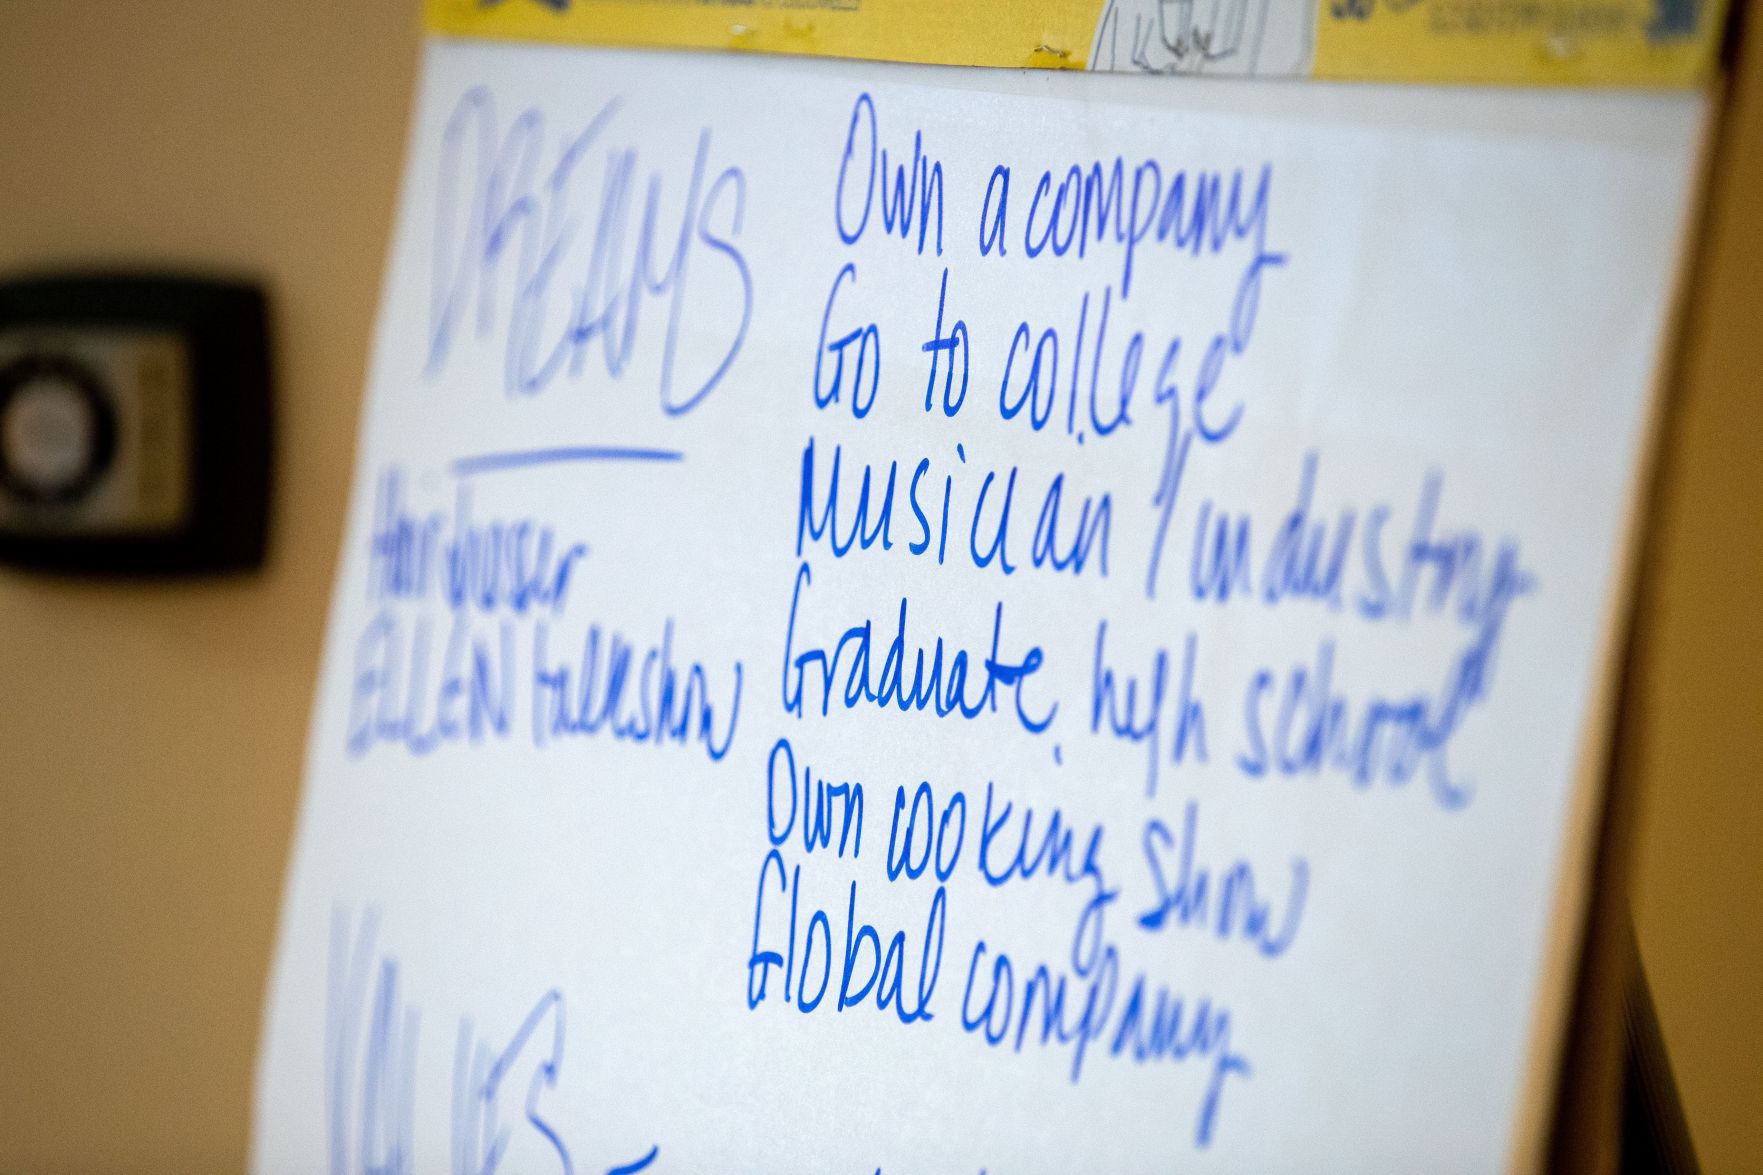 DREAMS
Own a company
Go to college
Musician / industry
Graduate high school
Own cooking show
Global company
ELLEN talkshow
VALUES